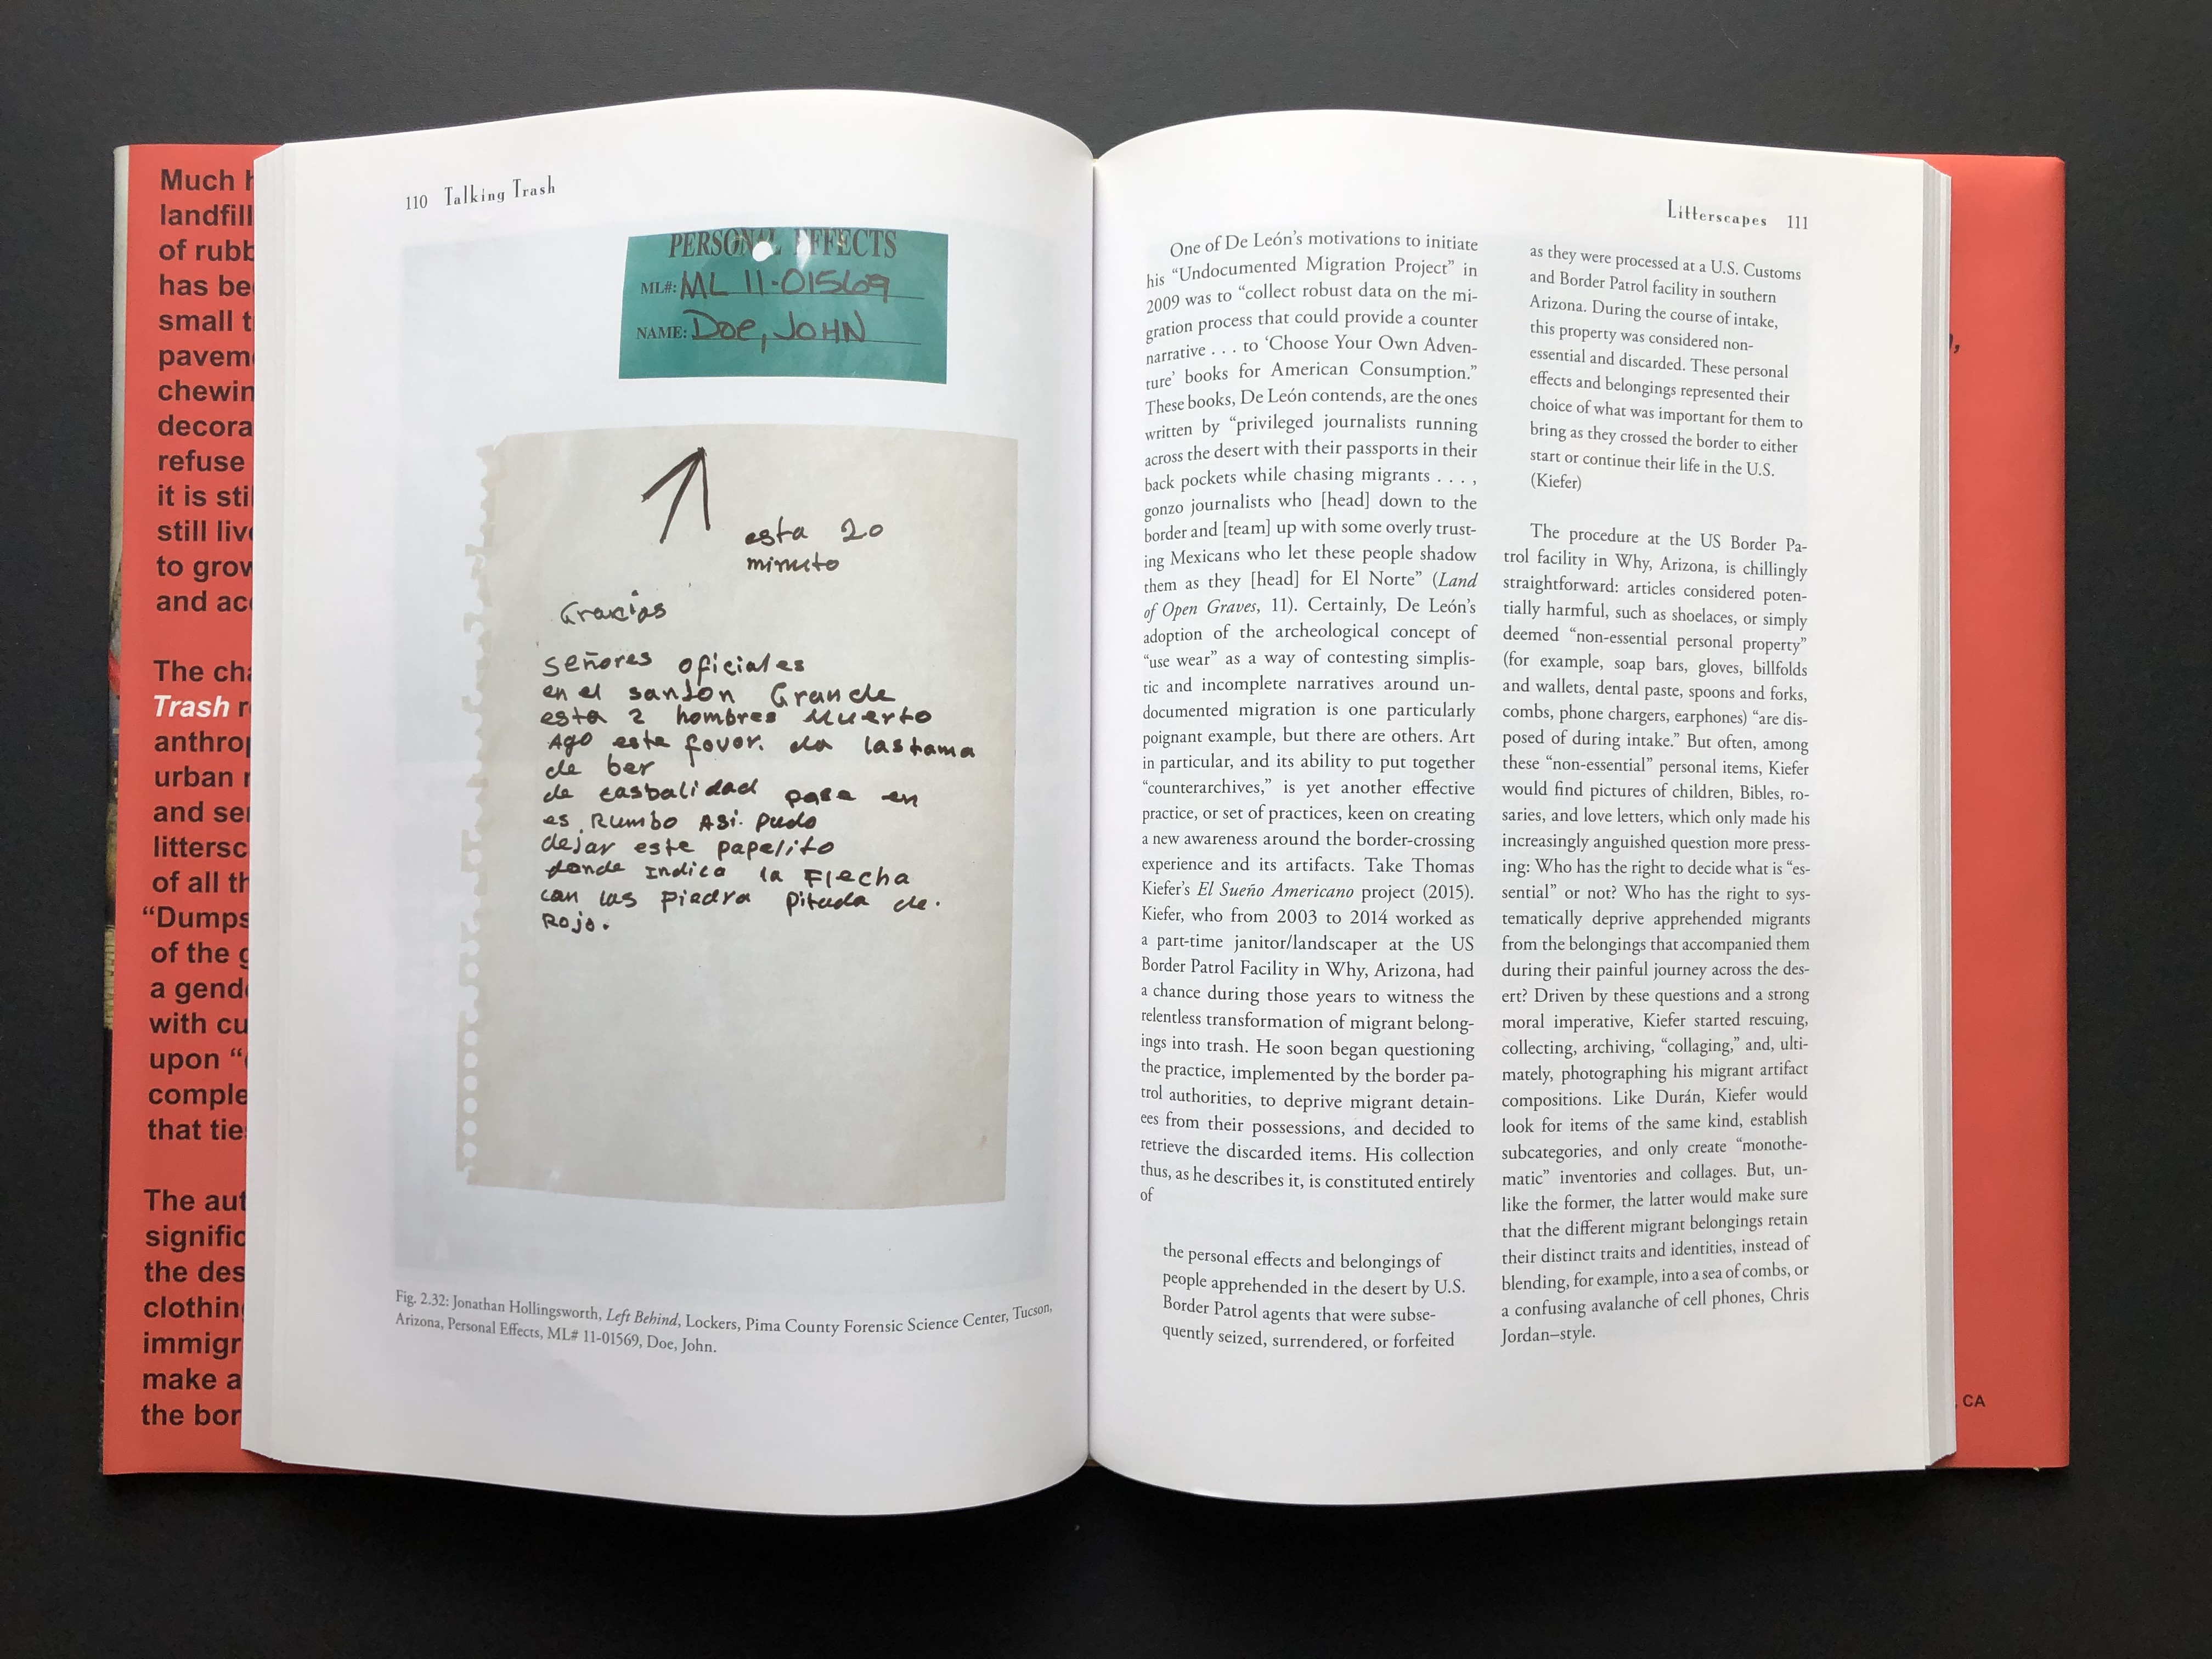 Much
landfill
of rubb
has be
small t
pavem
chewin
decora
refuse
it is sti
still liv
to grow
and acc
The cha
Trash r
anthrop
urban r
and ser
littersc
of all th
"Dumps
of the g
a gende
with cu
upon "
comple
that tie
The aut
signific
the des
clothing
immigr
make a
the bor
110 Talking Trash
PERSONAL EFFECTS
ML#: ML 11-01569
NAME: Doe, JOHN
esta 20
minuto
Gracias
señores oficiales
en el sanjon Grande
esta 2 hombres Muerto
Ago este favor. da lastama
de ber
de casbalidad pase en
es Rumbo Asi. pudo
dejar este papelito
donde Indica la Flecha
can las piedra pitada de.
Rojo.
Fig. 2.32: Jonathan Hollingsworth, Left Behind, Lockers, Pima County Forensic Science Center, Tucson,
Arizona, Personal Effects, ML# 11-01569, Doe, John.
Litterscapes 111
One of De León's motivations to initiate
his "Undocumented Migration Project" in
2009 was to "collect robust data on the mi-
gration process that could provide a counter
narrative . . . to 'Choose Your Own Adven-
ture' books for American Consumption."
These books, De León contends, are the ones
written by "privileged journalists running
across the desert with their passports in their
back pockets while chasing migrants . . . ,
gonzo journalists who [head] down to the
border and [team] up with some overly trust-
ing Mexicans who let these people shadow
them as they [head] for El Norte" (Land
of Open Graves, 11). Certainly, De León's
adoption of the archeological concept of
"use wear" as a way of contesting simplis-
tic and incomplete narratives around un-
documented migration is one particularly
poignant example, but there are others. Art
in particular, and its ability to put together
"counterarchives," is yet another effective
practice, or set of practices, keen on creating
a new awareness around the border-crossing
experience and its artifacts. Take Thomas
Kiefer's El Sueño Americano project (2015).
Kiefer, who from 2003 to 2014 worked as
a part-time janitor/landscaper at the US
Border Patrol Facility in Why, Arizona, had
a chance during those years to witness the
relentless transformation of migrant belong-
ings into trash. He soon began questioning
the practice, implemented by the border pa-
trol authorities, to deprive migrant detain-
ees from their possessions, and decided to
retrieve the discarded items. His collection
thus, as he describes it, is constituted entirely
of
the personal effects and belongings of
people apprehended in the desert by U.S.
Border Patrol agents that were subse-
quently seized, surrendered, or forfeited
as they were processed at a U.S. Customs
and Border Patrol facility in southern
Arizona. During the course of intake,
this property was considered non-
essential and discarded. These personal
effects and belongings represented their
choice of what was important for them to
bring as they crossed the border to either
start or continue their life in the U.S.
(Kiefer)
The procedure at the US Border Pa-
trol facility in Why, Arizona, is chillingly
straightforward: articles considered poten-
tially harmful, such as shoelaces, or simply
deemed "non-essential personal property"
(for example, soap bars, gloves, billfolds
and wallets, dental paste, spoons and forks,
combs, phone chargers, earphones) "are dis-
posed of during intake." But often, among
these "non-essential" personal items, Kiefer
would find pictures of children, Bibles, ro-
saries, and love letters, which only made his
increasingly anguished question more press-
ing: Who has the right to decide what is "es-
sential" or not? Who has the right to sys-
tematically deprive apprehended migrants
from the belongings that accompanied them
during their painful journey across the des-
ert? Driven by these questions and a strong
moral imperative, Kiefer started rescuing,
collecting, archiving, "collaging," and, ulti-
mately, photographing his migrant artifact
compositions. Like Durán, Kiefer would
look for items of the same kind, establish
subcategories, and only create "monothe-
matic" inventories and collages. But, un-
like the former, the latter would make sure
that the different migrant belongings retain
their distinct traits and identities, instead of
blending, for example, into a sea of combs, or
a confusing avalanche of cell phones, Chris
Jordan–style.
CA